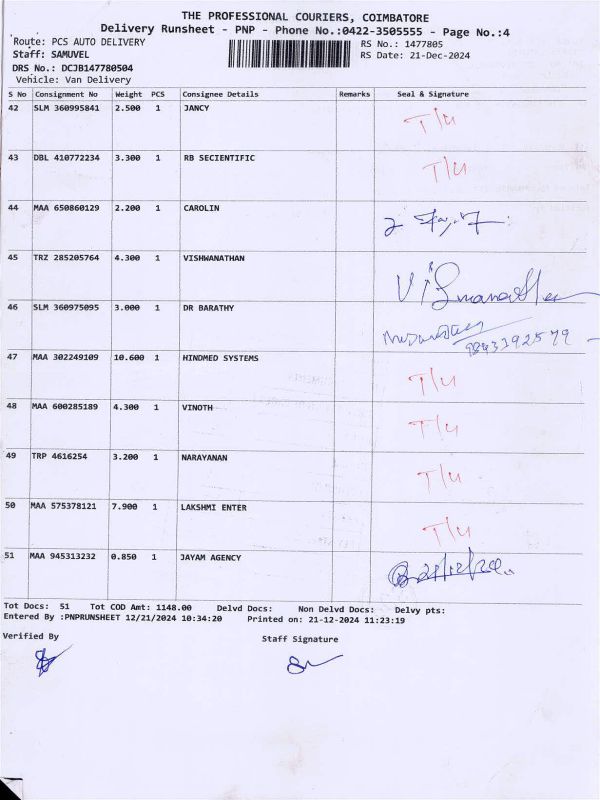 THE PROFESSIONAL COURIERS, COIMBATORE
Delivery Runsheet - PNP - Phone No.:0422-3505555 - Page No.:4
Route: PCS AUTO DELIVERY RS No.: 1477805
Staff: SAMUVEL RS Date: 21-Dec-2024
DRS No.: DCJB147780504
Vehicle: Van Delivery
S No Consignment No Weight PCS Consignee Details Remarks Seal & Signature
42 SLM 360995841 2.500 1 JANCY T/U
43 DBL 410772234 3.300 1 RB SECIENTIFIC T/U
44 MAA 650860129 2.200 1 CAROLIN
45 TRZ 285205764 4.300 1 VISHWANATHAN
46 SLM 360975095 3.000 1 DR BARATHY
47 MAA 302249109 10.600 1 HINDMED SYSTEMS T/U
48 MAA 600285189 4.300 1 VINOTH T/U
49 TRP 4616254 3.200 1 NARAYANAN T/U
50 MAA 575378121 7.900 1 LAKSHMI ENTER T/U
51 MAA 945313232 0.850 1 JAYAM AGENCY
Tot Docs: 51 Tot COD Amt: 1148.00 Delvd Docs: Non Delvd Docs: Delvy pts:
Entered By :PNPRUNSHEET 12/21/2024 10:34:20 Printed on: 21-12-2024 11:23:19
Verified By Staff Signature